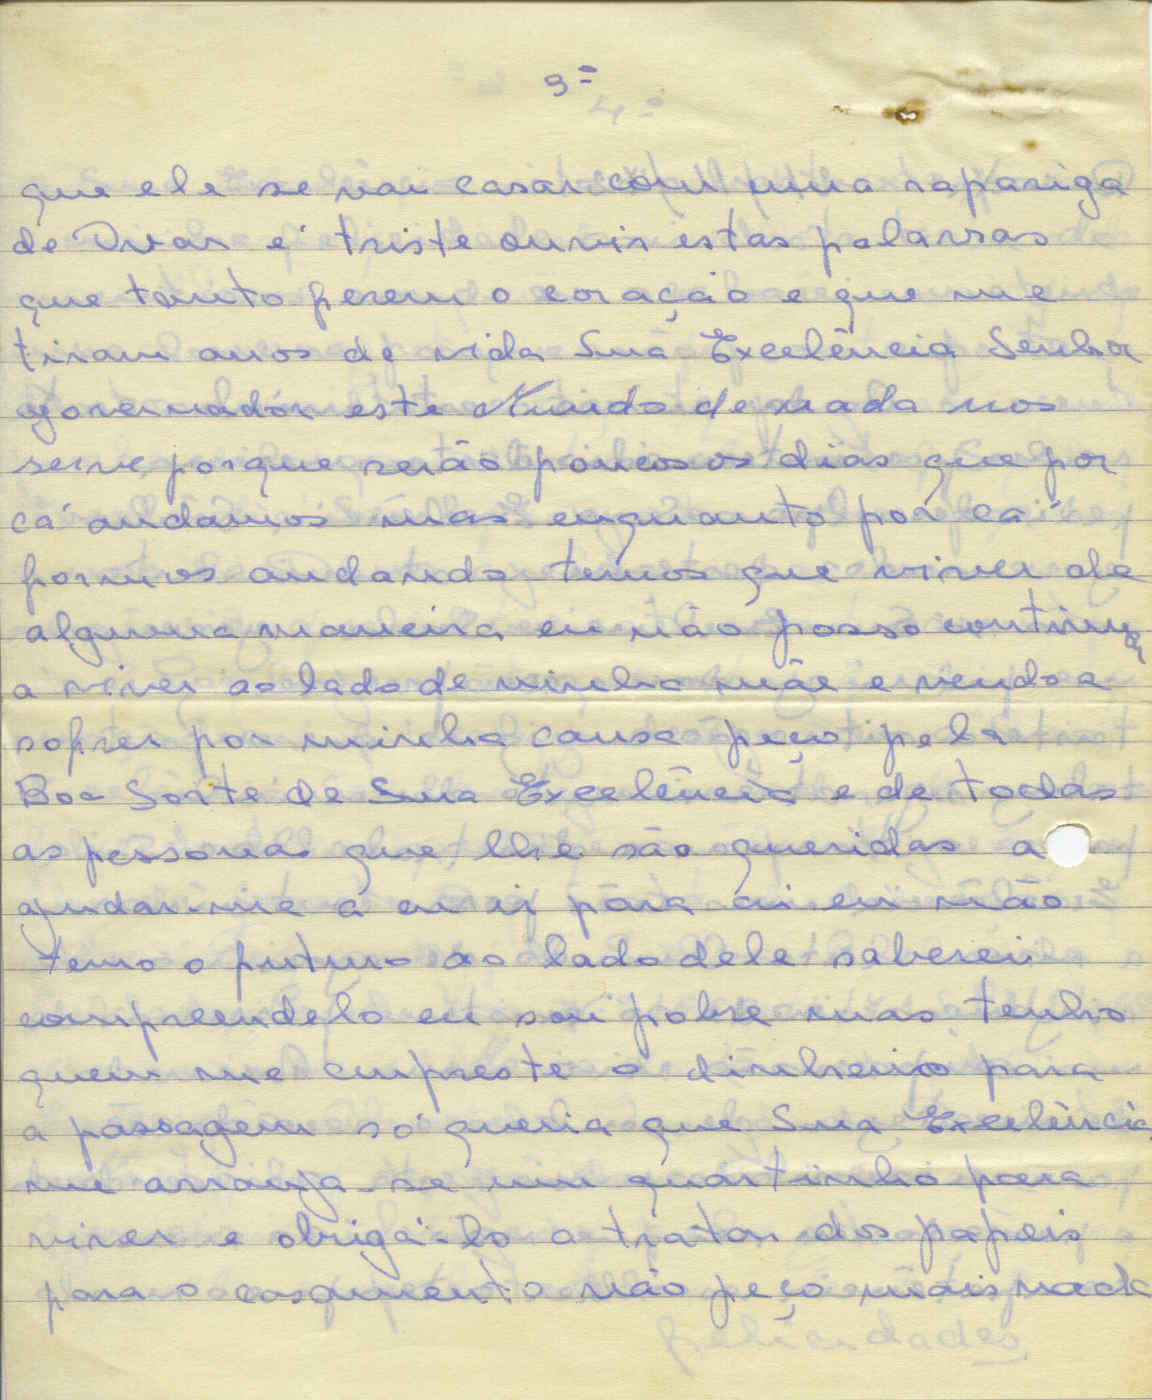 3º
que ele se vai casar com uma rapariga
de Ovar é triste ouvir estas palavras
que tanto ferem o coração e que me
tiram anos de vida Sua Excelência Senhor
Governador este Mundo de nada nos
serve porque serão poucos os dias que por
cá andamos mas enquanto por cá
formos andando temos que viver de
alguma maneira eu não posso continuar
a viver ao lado de minha mãe e vendo a
sofrer por minha causa peço pela
Boa Sorte de Sua Excelência e de todas
as pessoas que lhe são queridas a
ajudar-me a eu ir para ai eu não
temo o futuro ao lado dele saberei
compreendelo eu sou pobre mas tenho
quem me empreste o dinheiro para
a passagem só queria que Sua Excelência
me arranja-se um quartinho para
viver e obrigá-lo a tratar dos papeis
para o casamento não peço mais nada